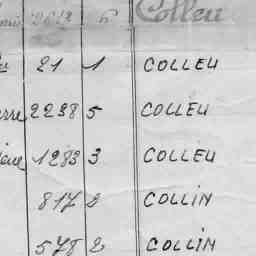 6 Colleu
21 1 COLLEU
2238 5 COLLEU
1283 3 COLLEU
817 2 COLLIN
578 2 COLLIN